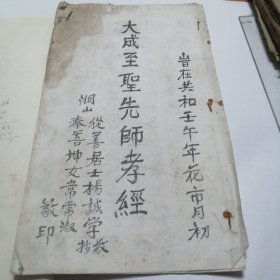 旹在共和壬午年花市月初
大成至聖先師孝經
從善居士楊誠学敬抄
洞山奉善坤女常常淑
敬印